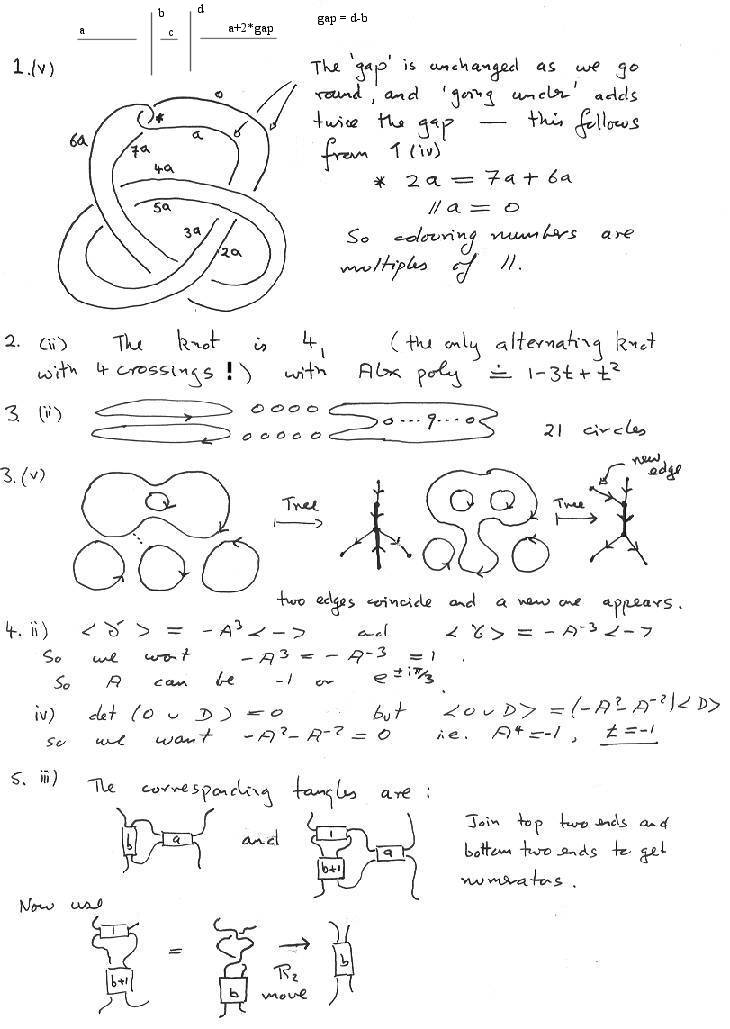 a b c d a+2*gap gap = d-b
1.(v) The 'gap' is unchanged as we go
round, and 'going under' adds
twice the gap — this follows
from 1(iv)
* 2a = 7a + 6a
11a = 0
So colouring numbers are
multiples of 11.
o
*
a
6a
7a
4a
5a
3a
2a
2. (ii) The knot is 4₁ (the only alternating knot
with 4 crossings!) with Alex poly ≐ 1-3t+t²
3. (ii) o ... 9 ... o 21 circles
3.(v) Tree Tree new edge
two edges coincide and a new one appears.
4. ii) < > = -A³< > and < > = -A⁻³< >
So we want -A³ = -A⁻³ = 1.
So A can be -1 or e^±iπ/3.
iv) det (O ∪ D) = 0 but <O ∪ D> = (-A²-A⁻²)<D>
so we want -A²-A⁻² = 0 i.e. A⁴=-1, t=-1
5. iii) The corresponding tangles are:
b a and 1 b+1 a
Join top two ends and
bottom two ends to get
numerators.
Now use
1 b+1 = b → R₂ move b